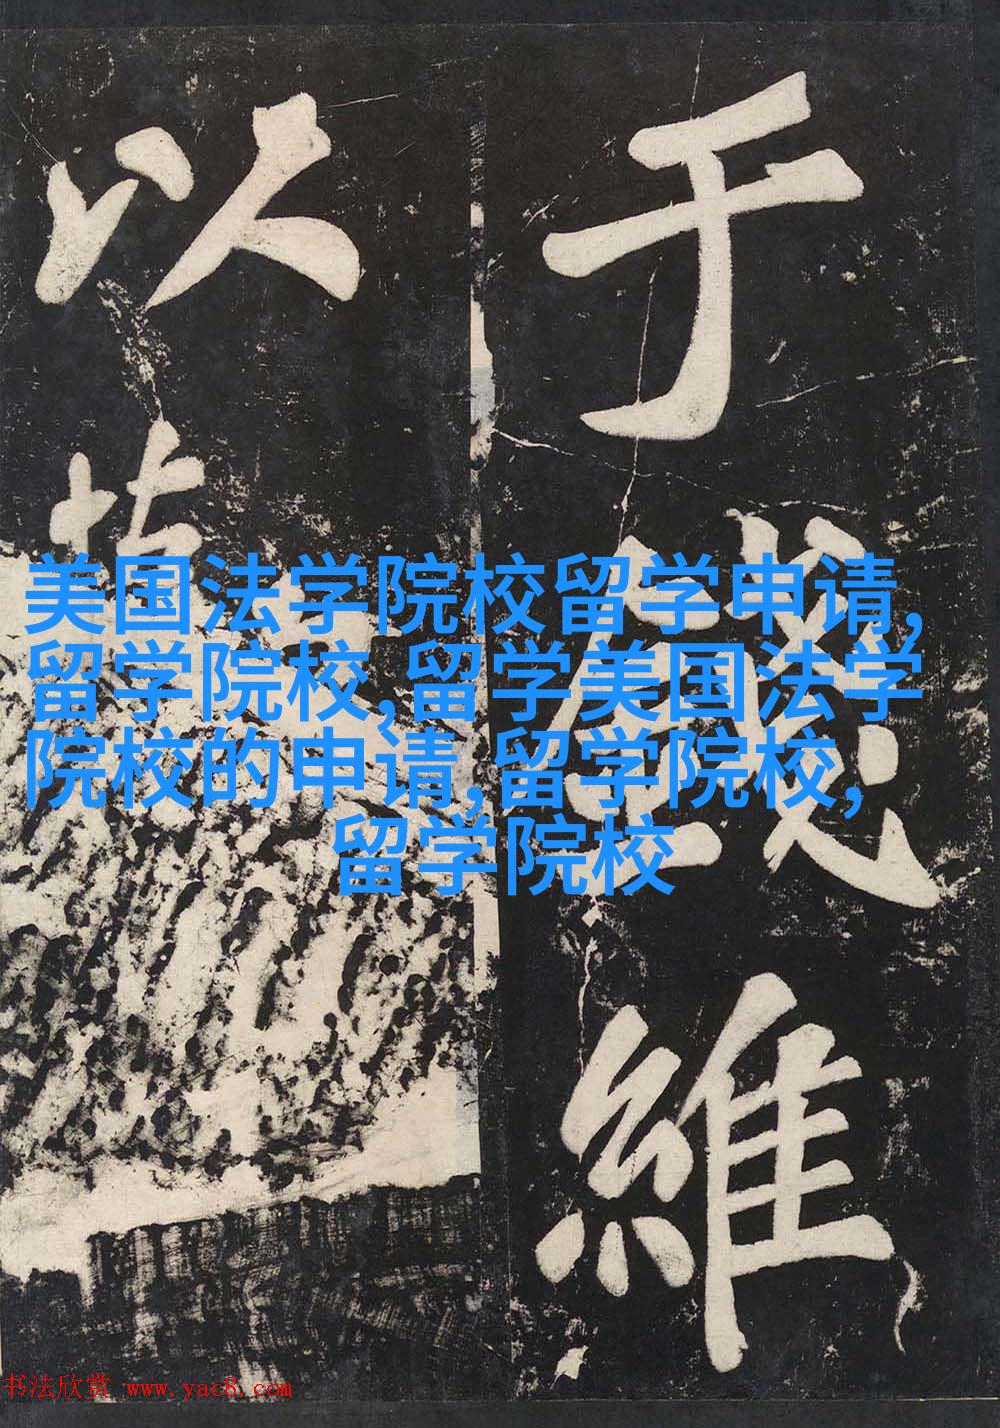 于
錢
維
以
美国法学院校留学申请,
留学院校,留学美国法学
院校的申请,留学院校,
留学院校
书法欣赏 www.yac8.com